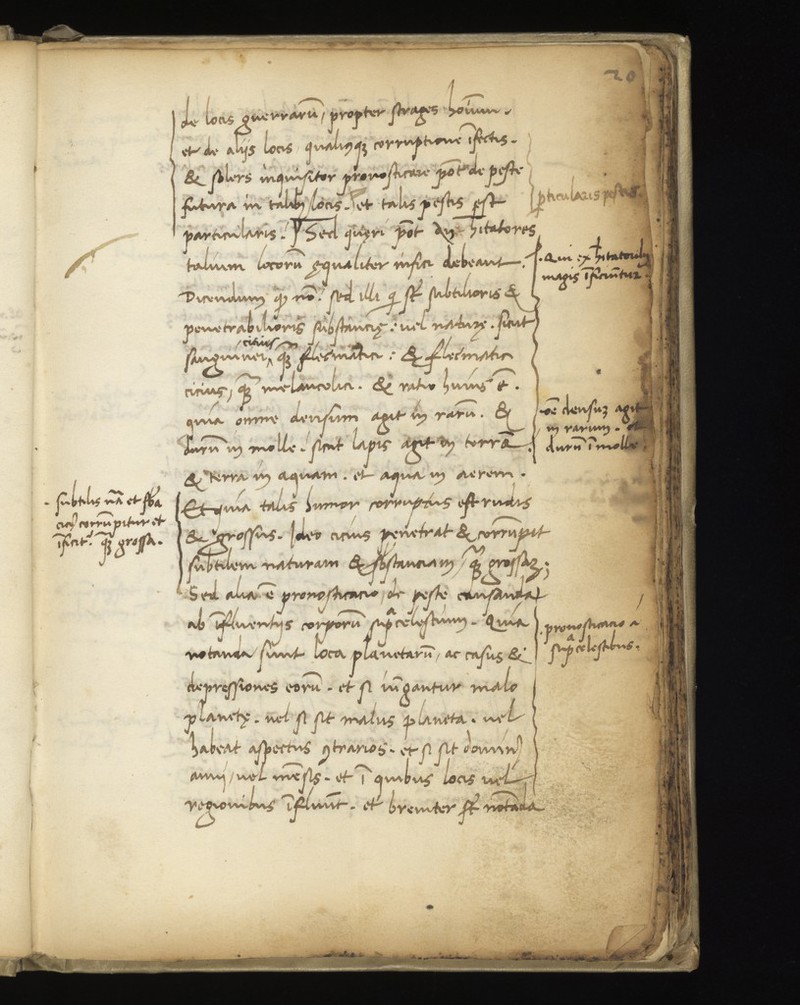 20
de locis guerrarū, propter strages hoīum.
et de aliis locis qualicūqꝫ corruptione īfectis.
& solers inquisitor pronosticare pōt de peste
futura in talibꝫ locis. et talis pestis est
particularis. Sed quęri pōt an hītatores
talium locorū ęqualiter infici debeant.
Dicendum qꝫ nō: sed illi qi sūt subtilioris &
penetrabilioris substancię: vel naturę. sicut
cicius
sanguinei, qꝫ flecmatici: & flecmatici
cicius, qꝫ melancolici. & ratio huius ē.
quia omne densum agit in rarū. &
durū in molle. sicut lapis agit in terrā.
& terra in aquam. et aqua in aerem.
Et quia talis humor corruptus est rudis
& grossus. Ideo cicius penetrat & corrūpit
subtilem naturam & sbstanciam, qꝫ grossaꝫ;
Sed alia ē pronosticacio, de peste causanda
ab īfluentiis corporū supcelestium. Quia
notanda sunt loca planetarū, ac casus &
depressiones eorū. et si iūgantur malo
planetę. vel si sit malus planeta. vel
habeat aspectus ꝯtrarios. et si sit dominꝰ
anni, vel mēsis. et ī quibus locis vel
regionibus īfluūt. et breuiter sūt notāda
pticularis pestis.
Qui ex hītatoribꝫ
magis īficiūntur.
oē densuꝫ agit
in rarum. et
durū ī molle.
subtilis nā et sbā
ciciꝰ corrūpitur et
īficit. qꝫ grossa.
pronosticacio a
supcelestibus.